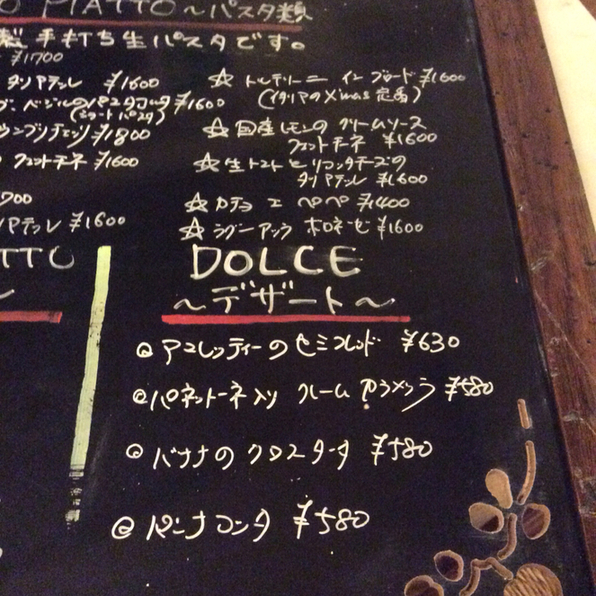 O PIATTO～パスタ類
製 手打ち生パスタです。
¥1700
タリアテッレ ¥1600
¥1600
¥1800
フェットチーネ ¥1600
¥1600
☆ トルテリーニ イン ブロード ¥1600
(イタリアのXmas定番)
☆ 国産レモンの クリームソース
フェットチーネ ¥1600
☆ 生トマトとリコッタチーズの
タリアテッレ ¥1600
☆ カチョ エ ペペ ¥1400
☆ ラグーアッラ ボロネーゼ ¥1600
TTO
DOLCE
～デザート～
@ アマレッティーのセミフレッド ¥630
@ パネットーネ入り クレーム カラメッラ ¥580
@ バナナの クロスタータ ¥580
@ パンナコッタ ¥580